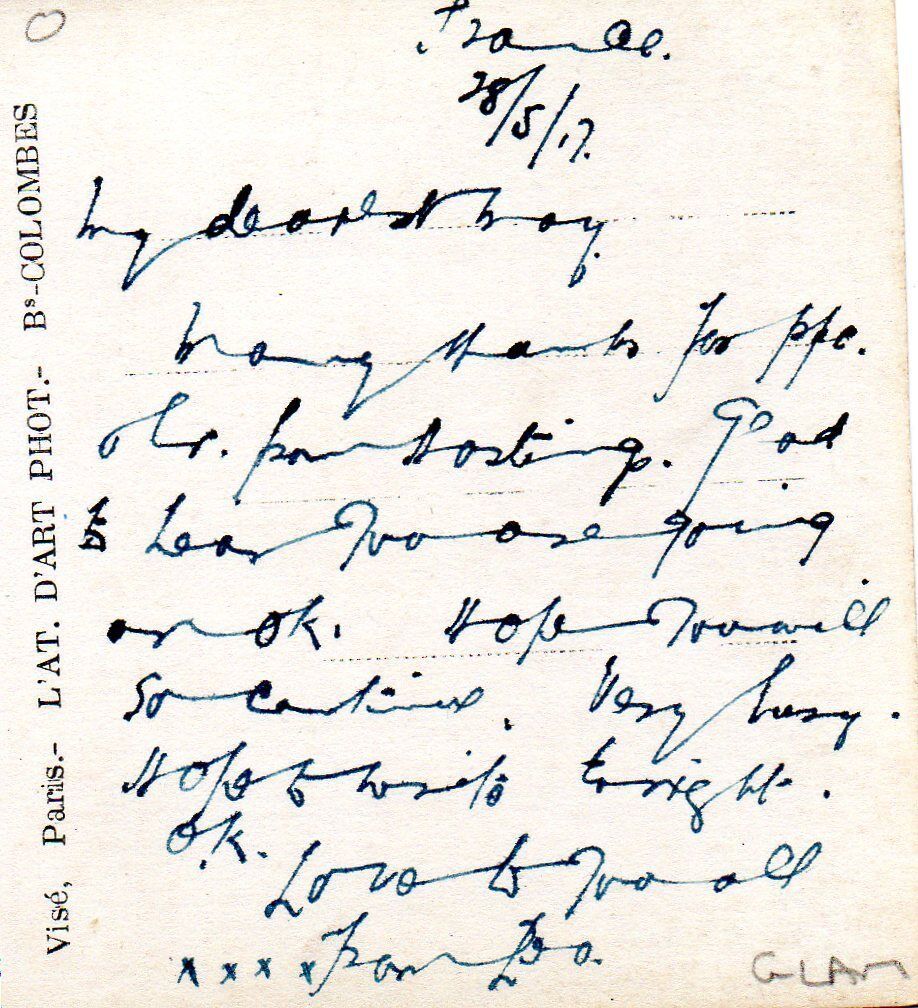 France.
28/5/17.
My dearest May
Many thanks for ppc.
& lr. from Hastings. Glad
to hear you are going
on OK. Hope you will
so continue. Very busy.
Hope to write tonight.
O.K.
Love to you all
x x x x from Leo.
GLAM
Visé, Paris.- L'AT. D'ART PHOT.- Bs-COLOMBES